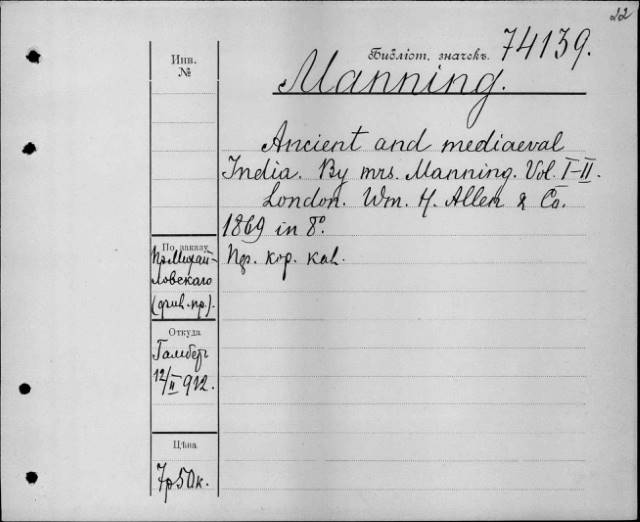 22
Библіот. значекъ. 74139.
Manning.
Инв.
№
Ancient and mediaeval
India. By mrs. Manning. Vol. I-II.
London. Wm. H. Allen & Co.
1869 in 8°.
кор. кал.
По заказу
Пр. Михай-
ловскаго
Откуда
12/II 912.
Цѣна
7р50к.